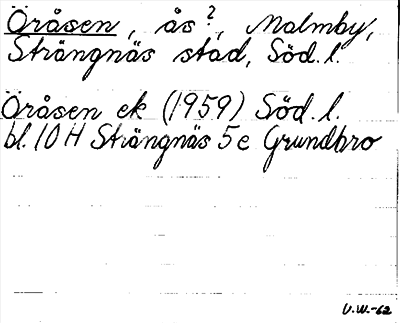 Öråsen, ås?, Malmby,
Strängnäs stad, Söd. l.
Öråsen ek (1959) Söd. l.
bl. 10 H Strängnäs 5 e Grundbro
V.W.-62